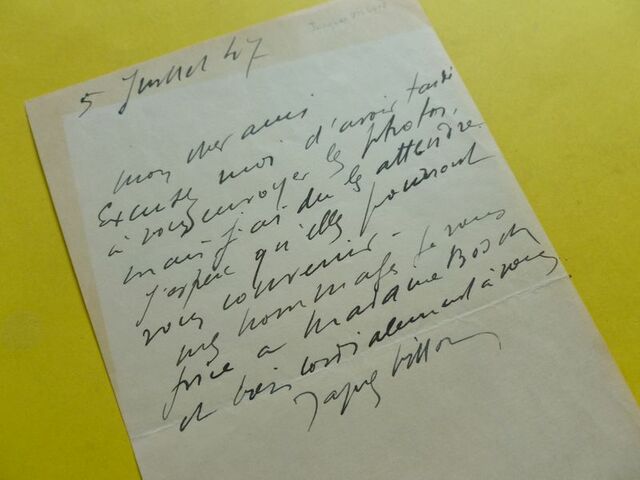 5 Juillet 47
mon cher ami
Excusez moi d'avoir tardé
à vous envoyer les photos,
mais j'ai du les attendre
J'espère qu'elles pourront
vous convenir -
mes hommages je vous
prie à Madame
et bien cordialement à vous
Jacques Villon